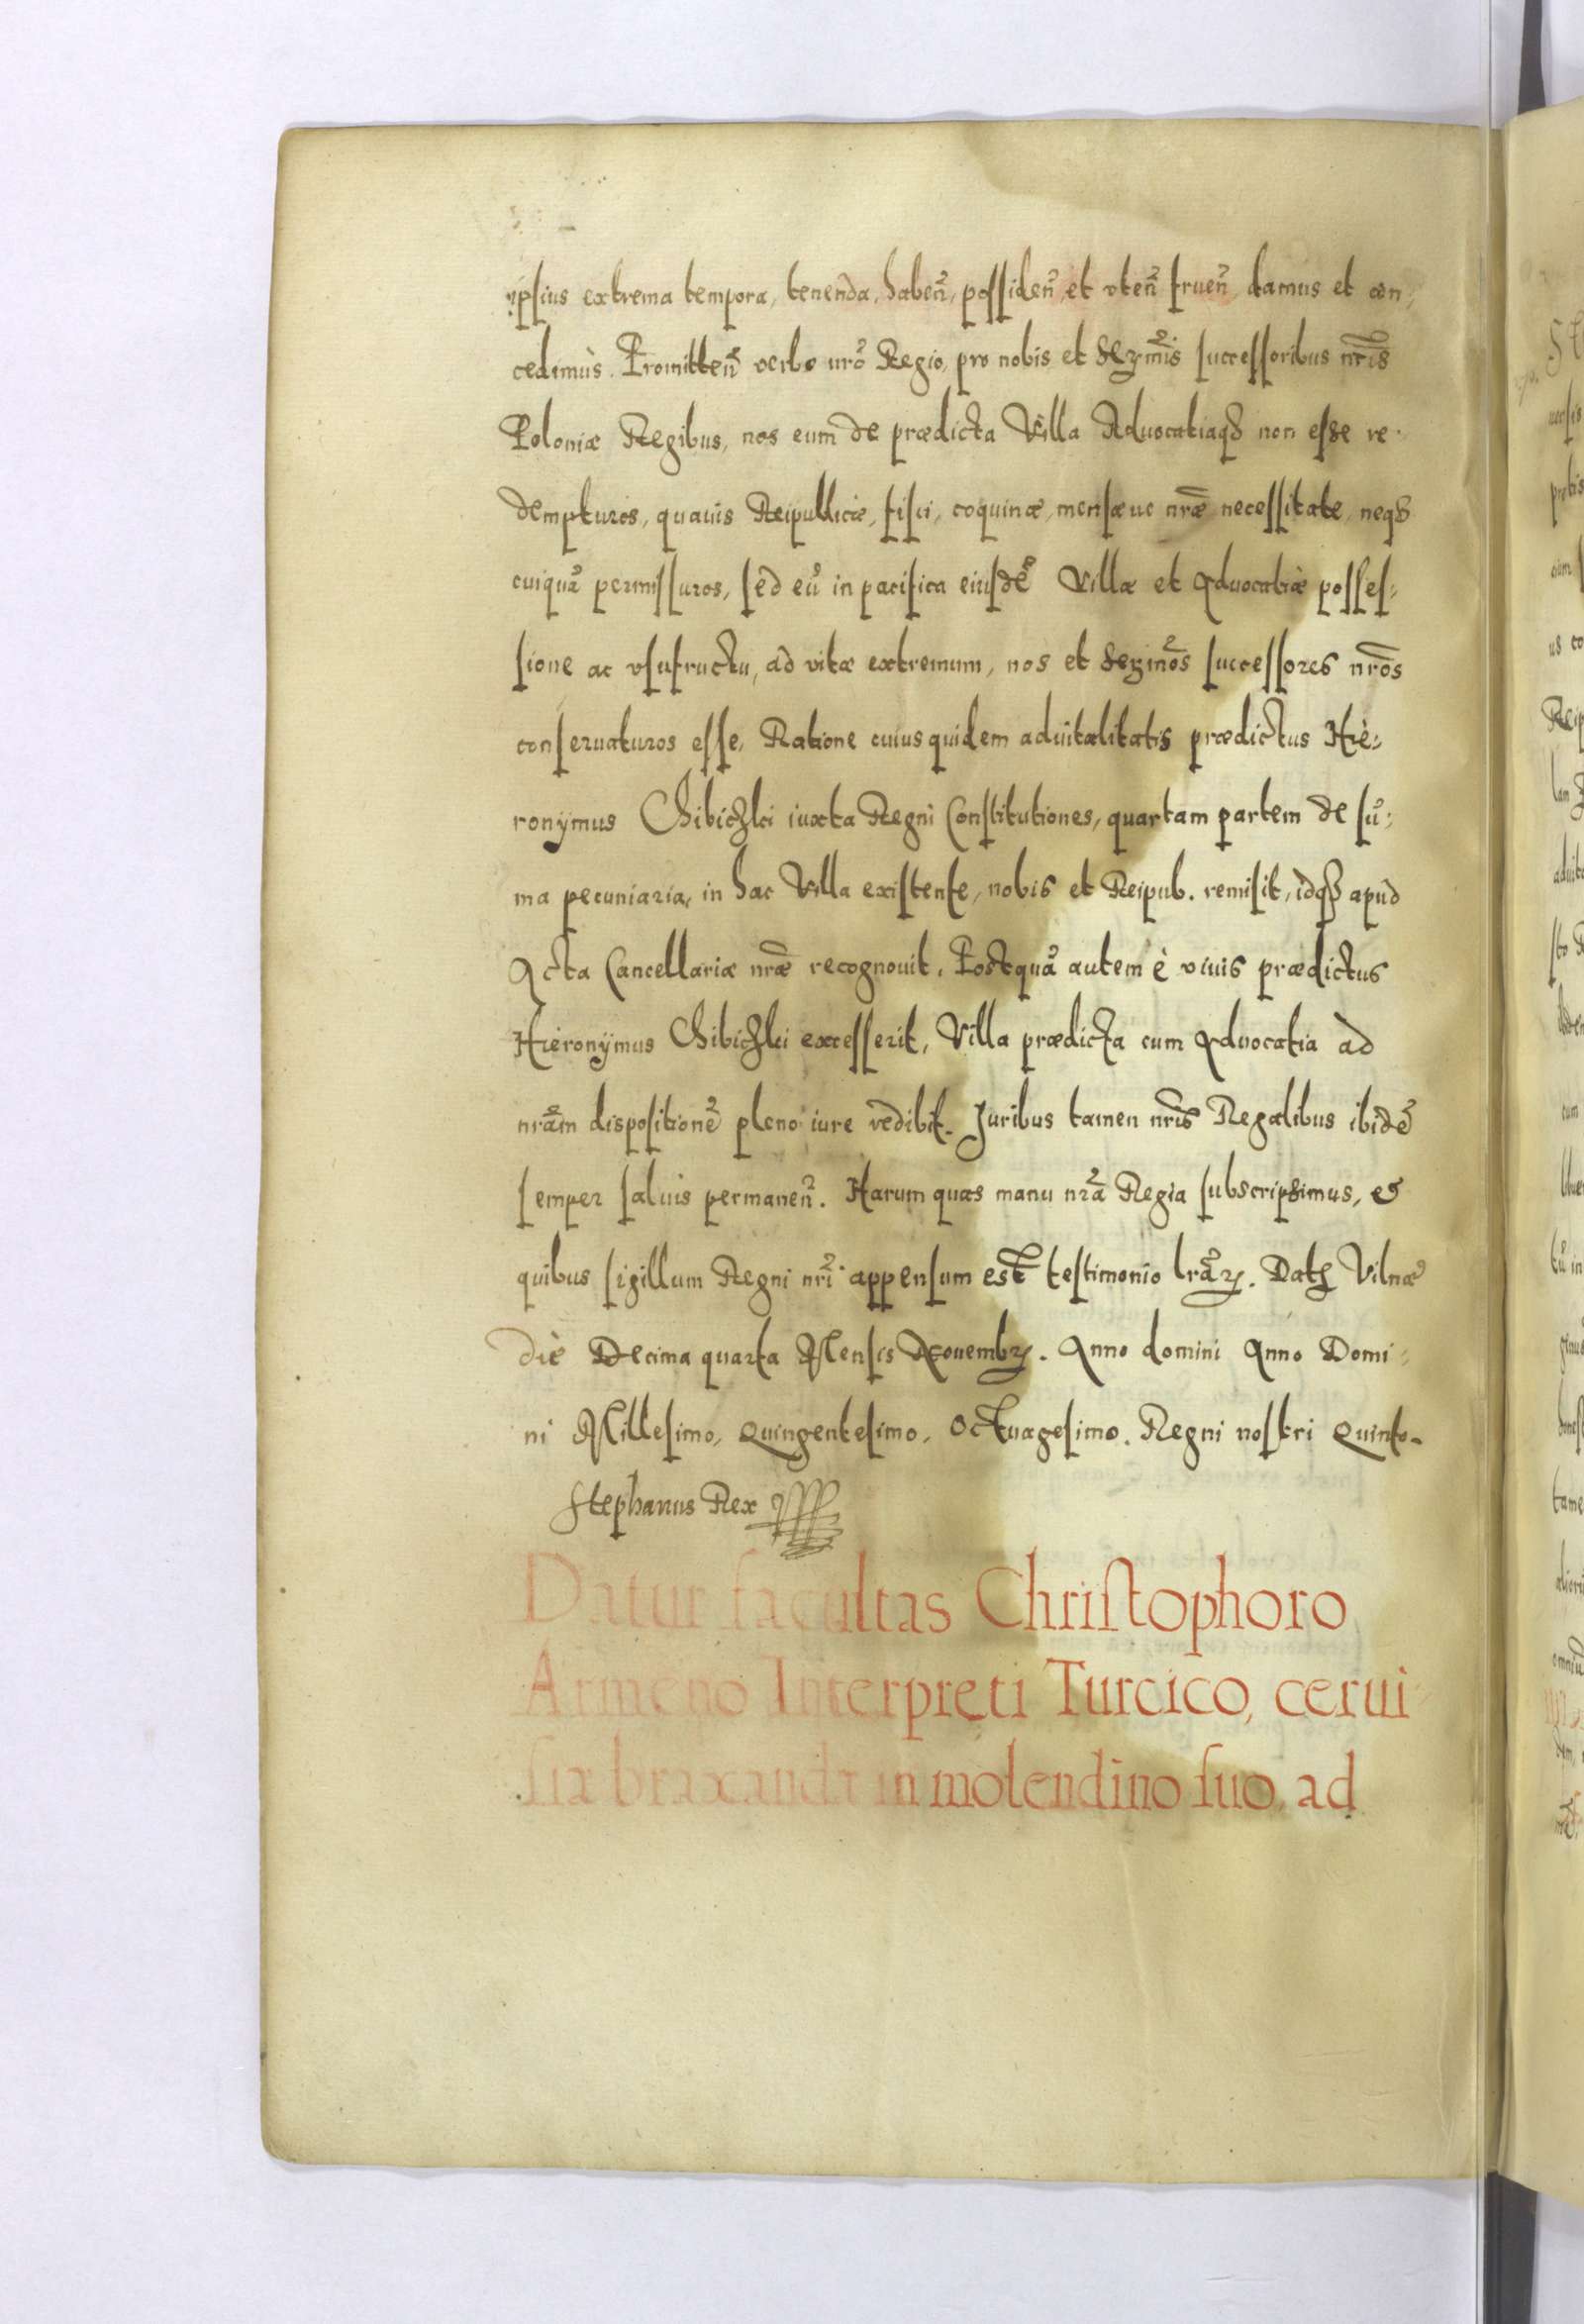 ipsius extrema tempora, tenenda, haben̄, possiden̄, et vten̄ fruen̄, damus et con,
cedimus. Promitten̄ verbo nr̄o Regio, pro nobis et Serm̄is successoribus nr̄is
Poloniæ Regibus, nos eum de prædicta Villa Aduocatiaq₃ non esse re-
dempturos, quauis Reipublicæ, fisci, coquinæ, mensæue nr̄æ necessitate, neq₃
cuiquā permissuros, sed eū in pacifica eiusdē Villæ et Aduocatiæ posses-
sione ac vsufructu, ad vitæ extremum, nos et Serm̄os successores nr̄os
conseruaturos esse, Ratione cuius quidem aduitalitatis prædictus Hie-
ronÿmus iuxta Regni Constitutiones, quartam partem de sū-
ma pecuniaria, in hac Villa existente, nobis et Reipub. remisit, idq₃ apud
Acta Cancellariæ nr̄æ recognouit. Postquā autem è viuis prædictus
Hieronÿmus excesserit, Villa prædicta cum Aduocatia ad
nr̄am dispositionē pleno iure redibit. Juribus tamen nr̄is Regalibus ibidē
semper saluis permanen̄. Harum quas manu nr̄a Regia subscripsimus, et
quibus sigillum Regni nr̄i appensum est testimonio lr̄aꝝ. Datꝫ Vilnæ
die Decima quarta Mensis Nouembꝝ. Anno domini Anno Domi-
ni Millesimo, Quingentesimo, Octuagesimo. Regni nostri Quinto.
Stephanus Rex
Datur facultas Christophoro
Armeno Interpreti Turcico, cerui-
siæ braxandæ in molendino suo, ad